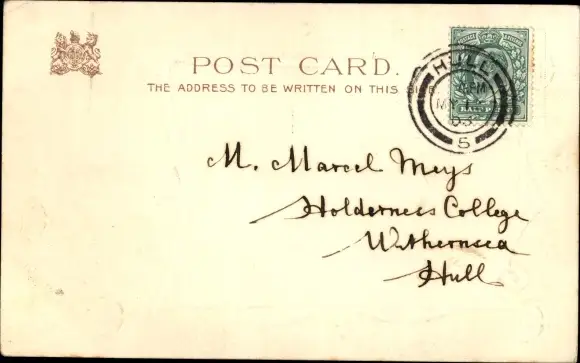 POST CARD.
THE ADDRESS TO BE WRITTEN ON THIS SIDE.
HULL
PM
MY 12
03
5
M. Marcel Meys
Holderness College
Withernsea
Hull